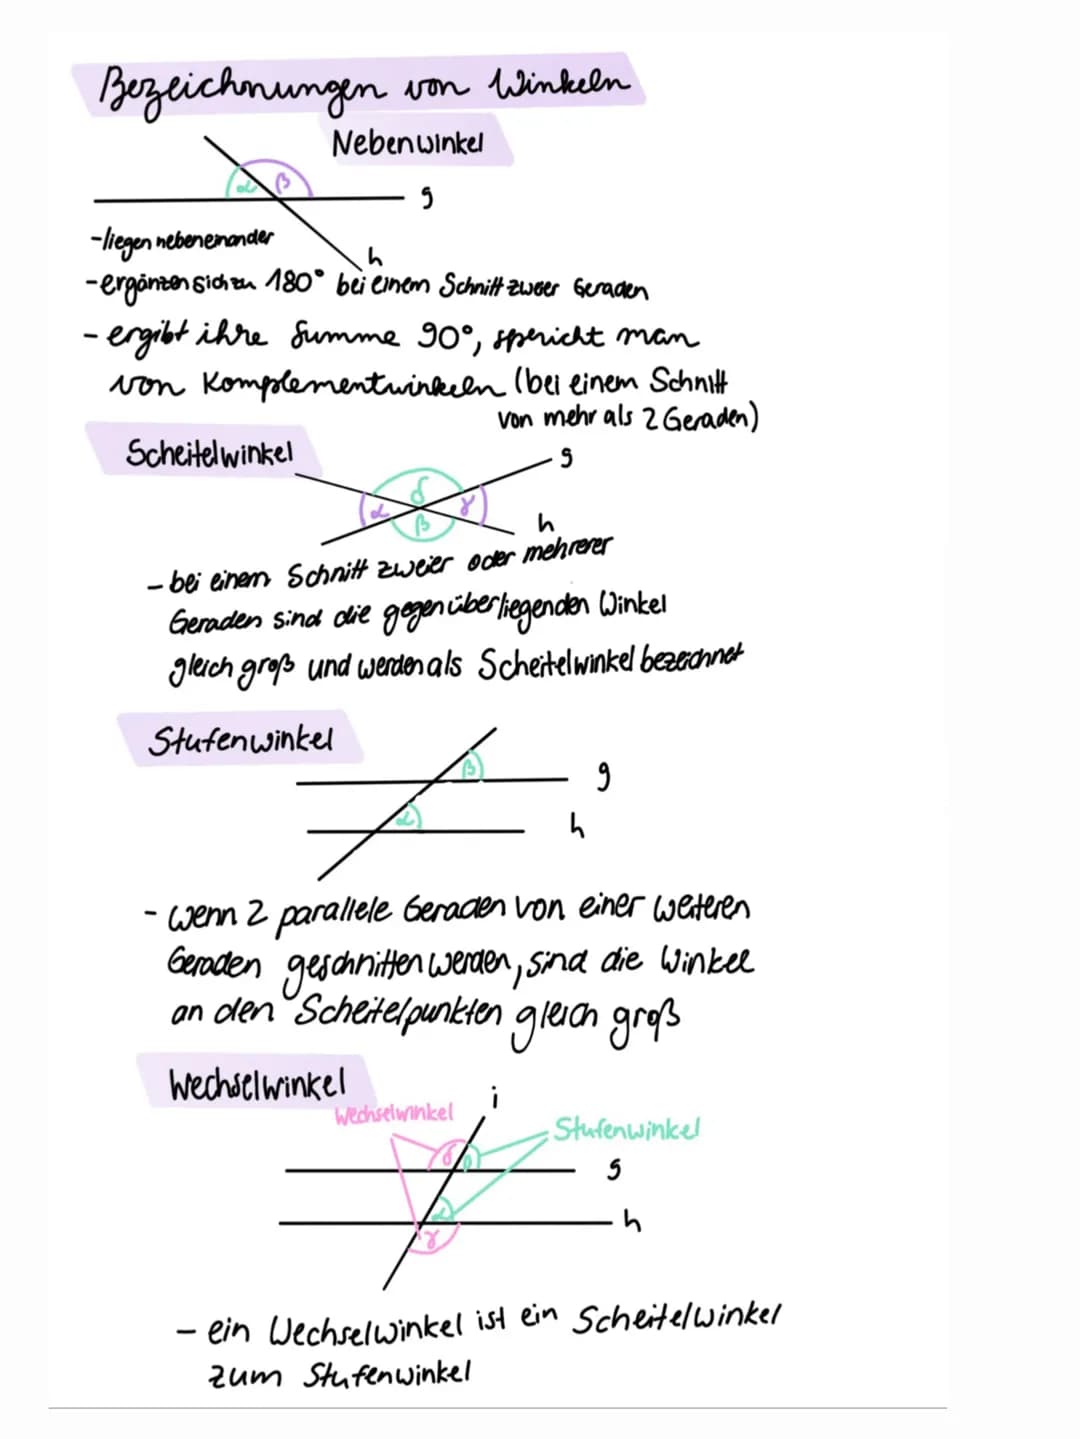 Bezeichnungen von Winkeln
Nebenwinkel
α β
g
h
-liegen nebeneinander
-ergänzen sich zu 180° bei einem Schnitt zweier Geraden
- ergibt ihre Summe 90°, spericht man
von Komplementwinkeln (bei einem Schnitt
von mehr als 2 Geraden)
Scheitelwinkel
g
δ
α γ
β
h
- bei einem Schnitt zweier oder mehrerer
Geraden sind die gegenüberliegenden Winkel
gleich groß und werden als Scheitelwinkel bezeichnet
Stufenwinkel
β
g
α
h
- wenn 2 parallele Geraden von einer weiteren
Geraden geschnitten werden, sind die Winkel
an den Scheitelpunkten gleich groß
Wechselwinkel
i
Wechselwinkel
Stufenwinkel
δ β
g
α
h
γ
- ein Wechselwinkel ist ein Scheitelwinkel
zum Stufenwinkel